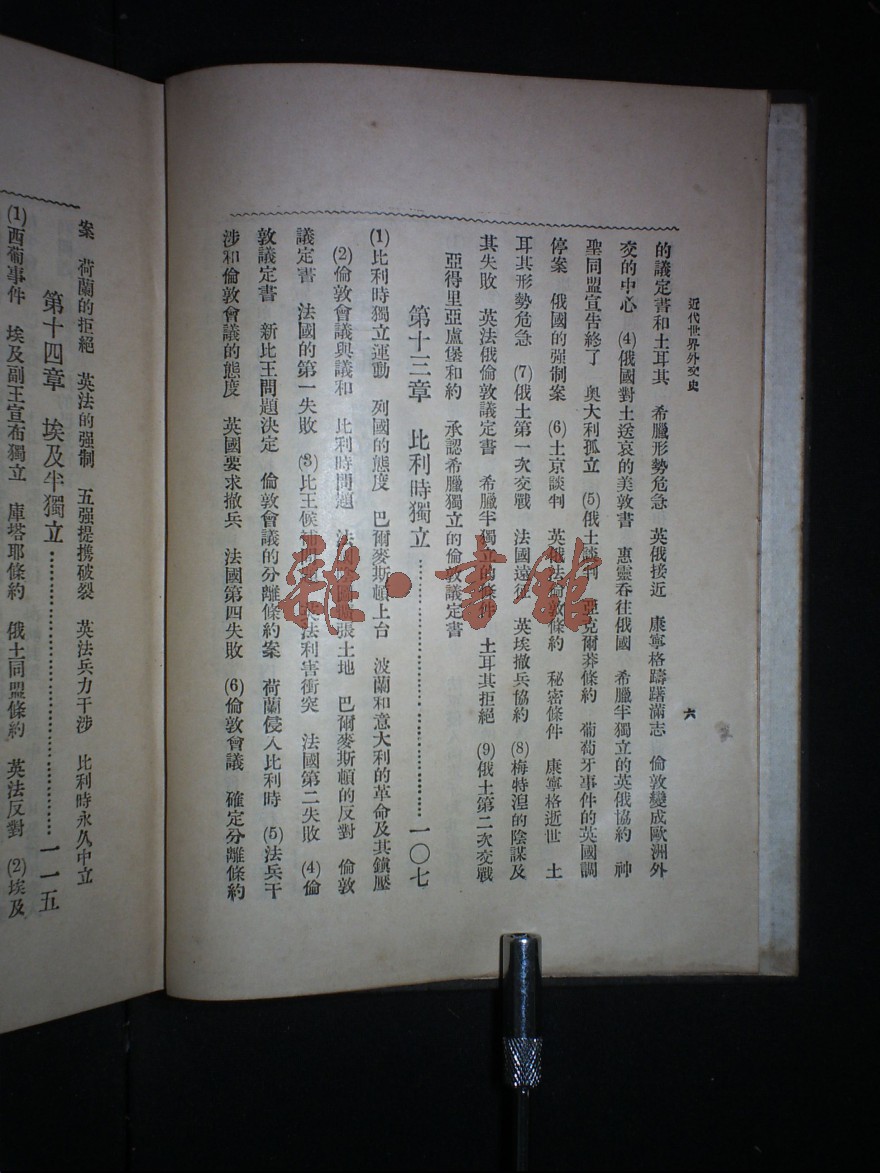 近代世界外交史
六
的議定書和土耳其　希臘形勢危急　英俄接近　康寧格躊躇滿志　倫敦變成歐洲外
交的中心　(4)俄國對土送哀的美敦書　惠靈吞往俄國　希臘半獨立的英俄協約　神
聖同盟宣告終了　奧大利孤立　(5)俄土談判　亞克爾莽條約　葡萄牙事件的英國調
停案　俄國的强制案　(6)土京談判　英俄法倫敦條約　秘密條件　康寧格逝世　土
耳其形勢危急　(7)俄土第一次交戰　法國遠征　英埃撤兵協約　(8)梅特涅的陰謀及
其失敗　英法俄倫敦議定書　希臘半獨立的條件　土耳其拒絕　(9)俄土第二次交戰
亞得里亞盧堡和約　承認希臘獨立的倫敦議定書
第十三章　比利時獨立………………一〇七
(1)比利時獨立運動　列國的態度　巴爾麥斯頓上台　波蘭和意大利的革命及其鎮壓
(2)倫敦會議與議和　比利時問題　法　張土地　巴爾麥斯頓的反對　倫敦
議定書　法國的第一失敗　(3)比王候補　英法利害衝突　法國第二失敗　(4)倫
敦議定書　新比王問題決定　倫敦會議的分離條約案　荷蘭侵入比利時　(5)法兵干
涉和倫敦會議的態度　英國要求撤兵　法國第四失敗　(6)倫敦會議　確定分離條約
案　荷蘭的拒絕　英法的强制　五强提携破裂　英法兵力干涉　比利時永久中立
第十四章　埃及半獨立………………一一五
(1)西葡事件　埃及副王宣布獨立　庫塔耶條約　俄土同盟條約　英法反對　(2)埃及
雜·書館